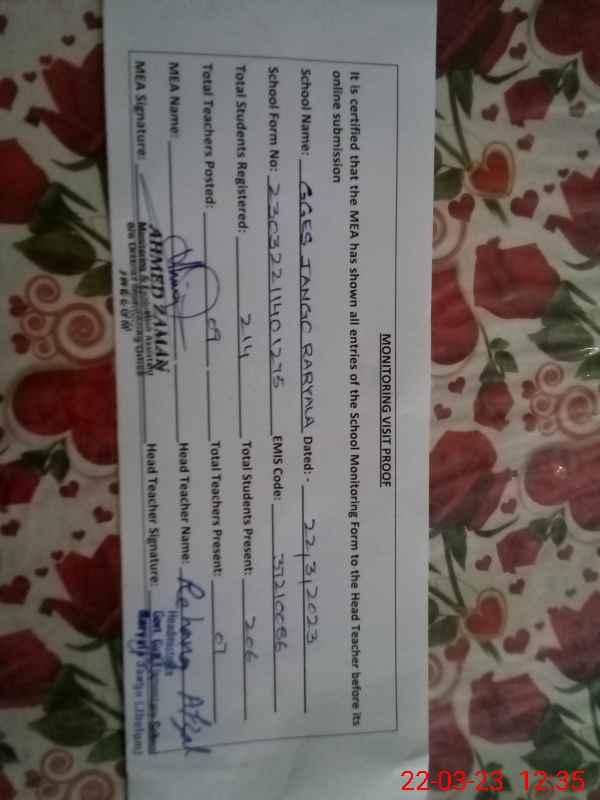 MONITORING VISIT PROOF
It is certified that the MEA has shown all entries of the School Monitoring Form to the Head Teacher before its
online submission
School Name: GGES JANGO RARYALA Dated:- 22/3/2023
School Form No: 23032211401275 EMIS Code: 37210086
Total Students Registered: 214 Total Students Present: 206
Total Teachers Posted: 09 Total Teachers Present: 07
MEA Name: Head Teacher Name: Rehana Afzal
MEA Signature: Head Teacher Signature:
AHMED ZAMAN
Monitoring & Evaluation Assistant
Headmistress
22-03-23 12:35